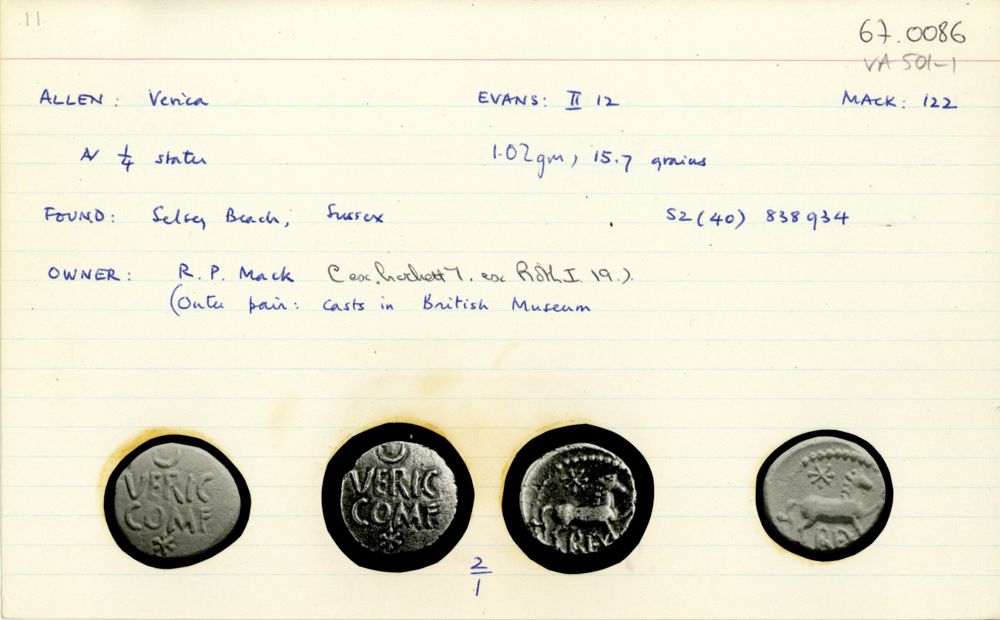 11
67.0086
VA 501-1
ALLEN: Verica EVANS: II 12 MACK: 122
N ¼ stater 1.02gm, 15.7 grains
FOUND: Selsey Beach, Sussex SZ(40) 838934
OWNER: R. P. Mack (ex. Lockett I. ex Roth I. 19.)
(Outer pair: casts in British Museum
VERIC
COMF
VERIC
COMF
REX
REX
2/1